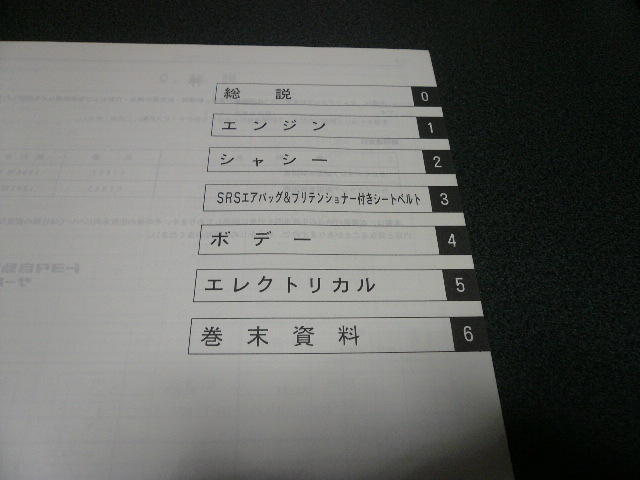 総説 0
エンジン 1
シャシー 2
SRSエアバッグ&プリテンショナー付きシートベルト 3
ボデー 4
エレクトリカル 5
巻末資料 6